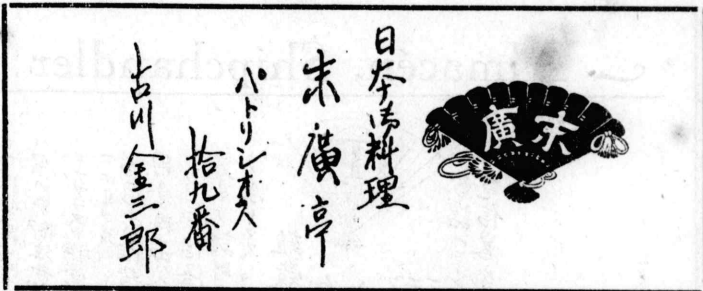 末廣
日本御料理
末廣亭
パトリシオス
拾九番
古川金三郎